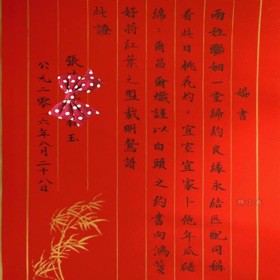 婚書
兩姓聯姻一堂締約良緣永結匹配同稱
看此日桃花灼々宜室宜家卜他年瓜瓞
綿々爾昌爾熾謹以白頭之約書向鴻箋
好將紅葉之盟載明鴛譜
此證
張
玉
公元二零一六年八月二十八日